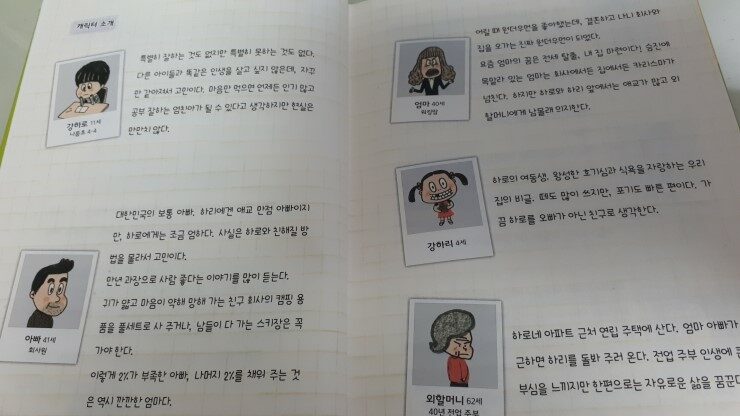 캐릭터 소개
특별히 잘하는 것도 없지만 특별히 못하는 것도 없다.
다른 아이들과 똑같은 인생을 살고 싶지 않은데, 자꾸
만 같아져서 고민이다. 마음만 먹으면 언제든 인기 많고
공부 잘하는 엄친아가 될 수 있다고 생각하지만 현실은
만만치 않다.
강하로 11세
나눔초 4-4
대한민국의 보통 아빠. 하리에겐 애교 만점 아빠이지
만, 하로에게는 조금 엄하다. 사실은 하로와 친해질 방
법을 몰라서 고민이다.
만년 과장으로 사람 좋다는 이야기를 많이 듣는다.
귀가 얇고 마음이 약해 망해 가는 친구 회사의 캠핑 용
품을 풀세트로 사 주거나, 남들이 다 가는 스키장은 꼭
가야 한다.
이렇게 2%가 부족한 아빠, 나머지 2%를 채워 주는 것
은 역시 깐깐한 엄마다.
아빠 41세
회사원
어릴 때 원더우먼을 좋아했는데, 결혼하고 나니 회사와
집을 오가는 진짜 원더우먼이 되었다.
요즘 엄마의 꿈은 전세 탈출, 내 집 마련이다! 승진에
목말라 있는 엄마는 회사에서든 집에서든 카리스마가
넘친다. 하지만 하로와 하리 앞에서는 애교가 많고 외
할머니에게 남몰래 의지한다.
엄마 40세
워킹맘
하로의 여동생. 왕성한 호기심과 식욕을 자랑하는 우리
집의 비글. 떼도 많이 쓰지만, 포기도 빠른 편이다. 가
끔 하로를 오빠가 아닌 친구로 생각한다.
강하리 4세
하로네 아파트 근처 연립 주택에 산다. 엄마 아빠가
근하면 하리를 돌봐 주러 온다. 전업 주부 인생에
부심을 느끼지만 한편으로는 자유로운 삶을 꿈꾼다
외할머니 62세
40년 전업 주부